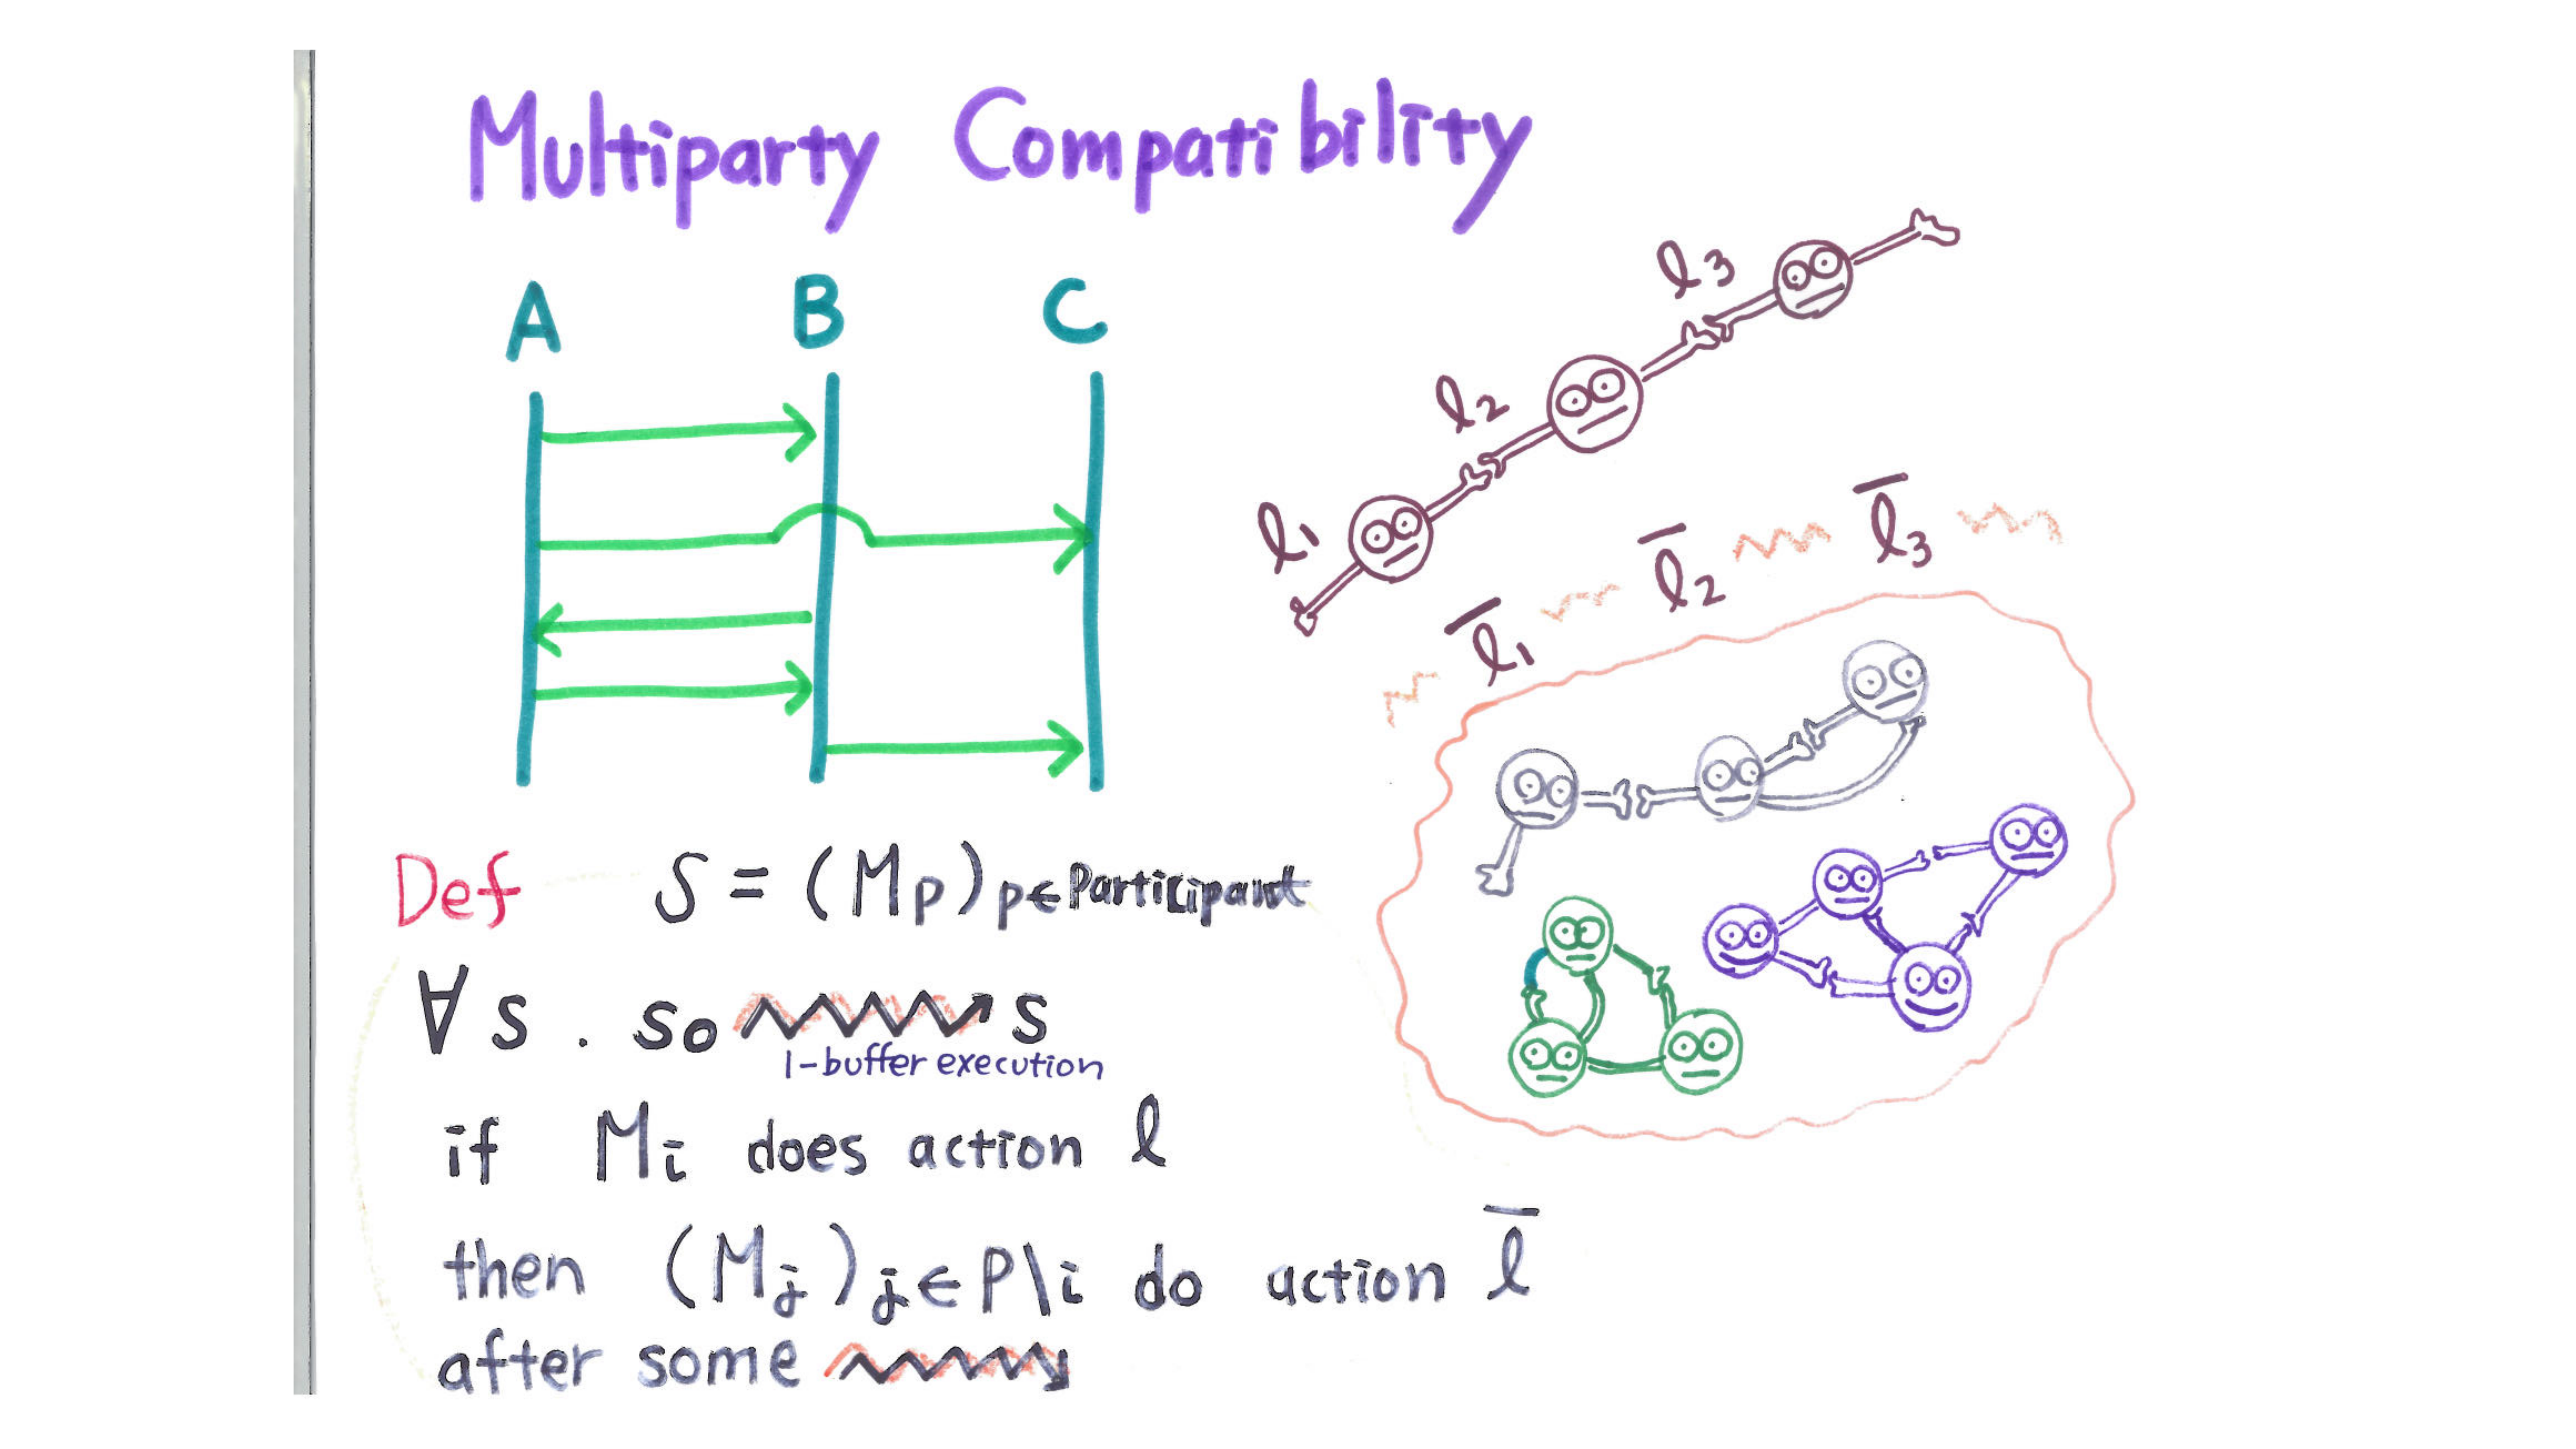 Multiparty Compatibility
A B C
l3
l2
l1
l̅1 l̅2 l̅3
Def S = (Mp)p∈Participant
∀s . so s
1-buffer execution
if Mi does action l
then (Mj)j∈P\i do action l̅
after some